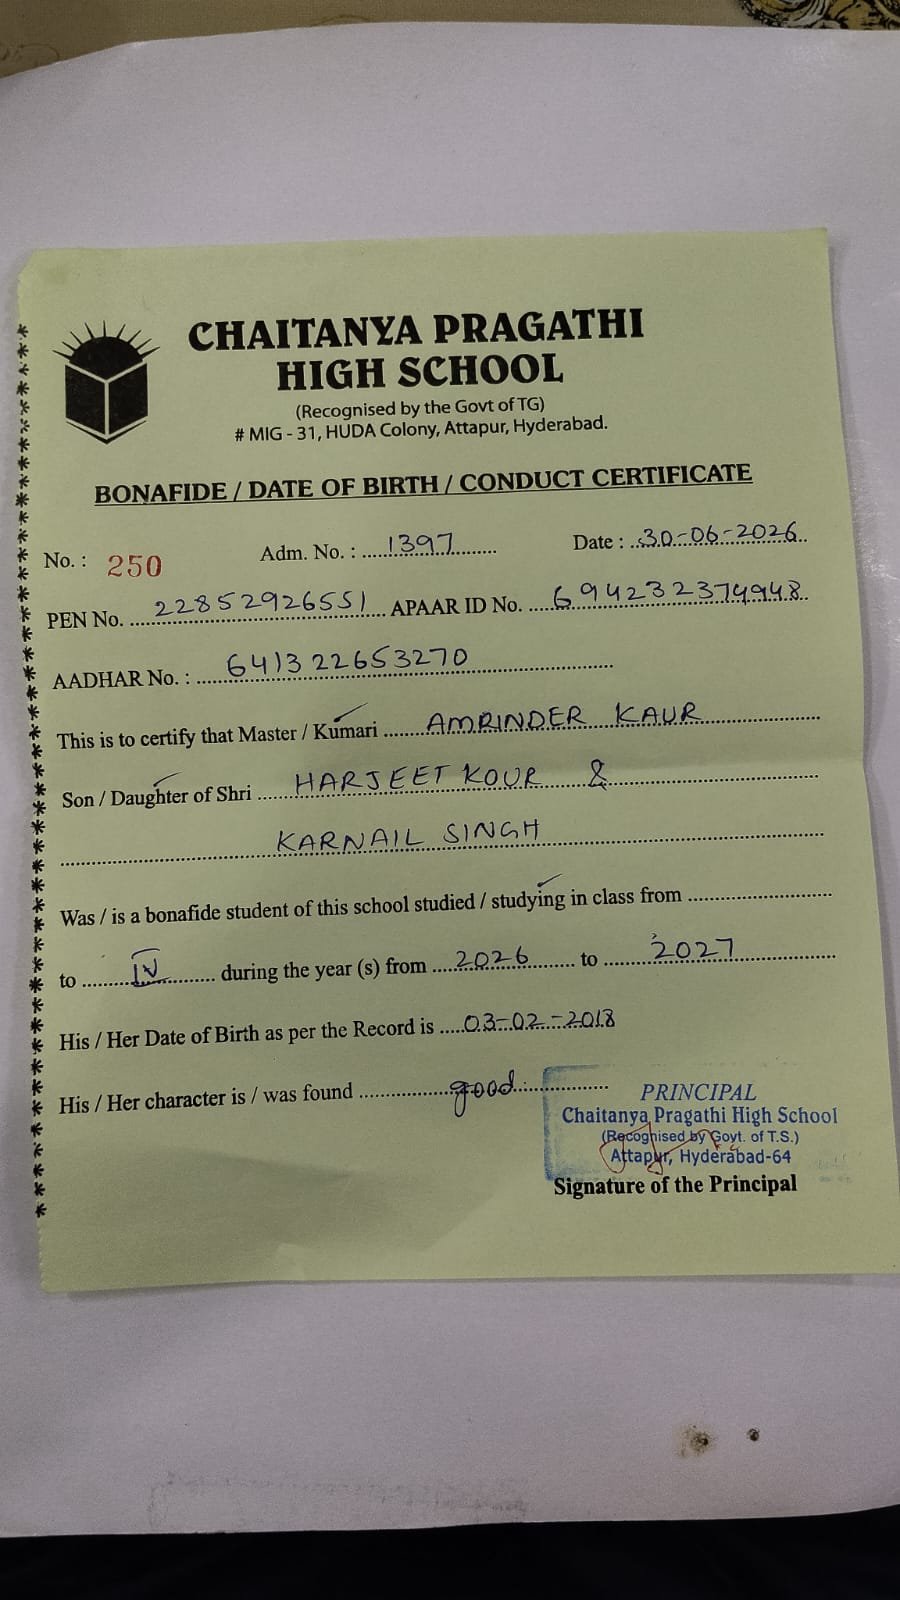 CHAITANYA PRAGATHI
HIGH SCHOOL
(Recognised by the Govt of TG)
# MIG - 31, HUDA Colony, Attapur, Hyderabad.
BONAFIDE / DATE OF BIRTH / CONDUCT CERTIFICATE
No. : 250 Adm. No. : 1397 Date : 30-06-2026
PEN No. 22852926551 APAAR ID No. 694232374948
AADHAR No. : 641322653270
This is to certify that Master / Kumari AMRINDER KAUR
Son / Daughter of Shri HARJEET KOUR &
KARNAIL SINGH
Was / is a bonafide student of this school studied / studying in class from
to IV during the year (s) from 2026 to 2027
His / Her Date of Birth as per the Record is 03-02-2018
His / Her character is / was found good
PRINCIPAL
Chaitanya Pragathi High School
(Recognised by Govt. of T.S.)
Attapur, Hyderabad-64
Signature of the Principal